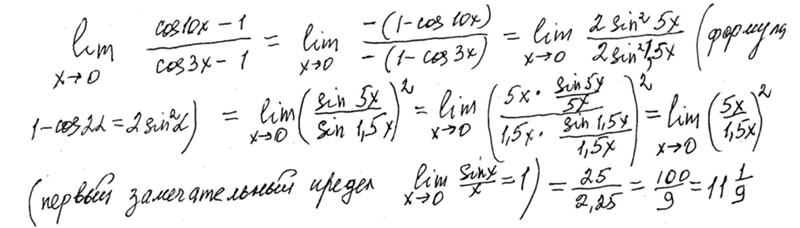 lim x→0 (cos10x − 1)/(cos3x − 1) = lim x→0 (−(1−cos10x))/(−(1−cos3x)) = lim x→0 (2sin²5x)/(2sin²1,5x) (формула
1−cos2α=2sin²α) = lim x→0 (sin 5x/sin 1,5x)² = lim x→0 ((5x · sin5x/5x)/(1,5x · sin1,5x/1,5x))² = lim x→0 (5x/1,5x)²
(первый замечательный предел lim x→0 sinx/x = 1) = 25/2,25 = 100/9 = 11 1/9